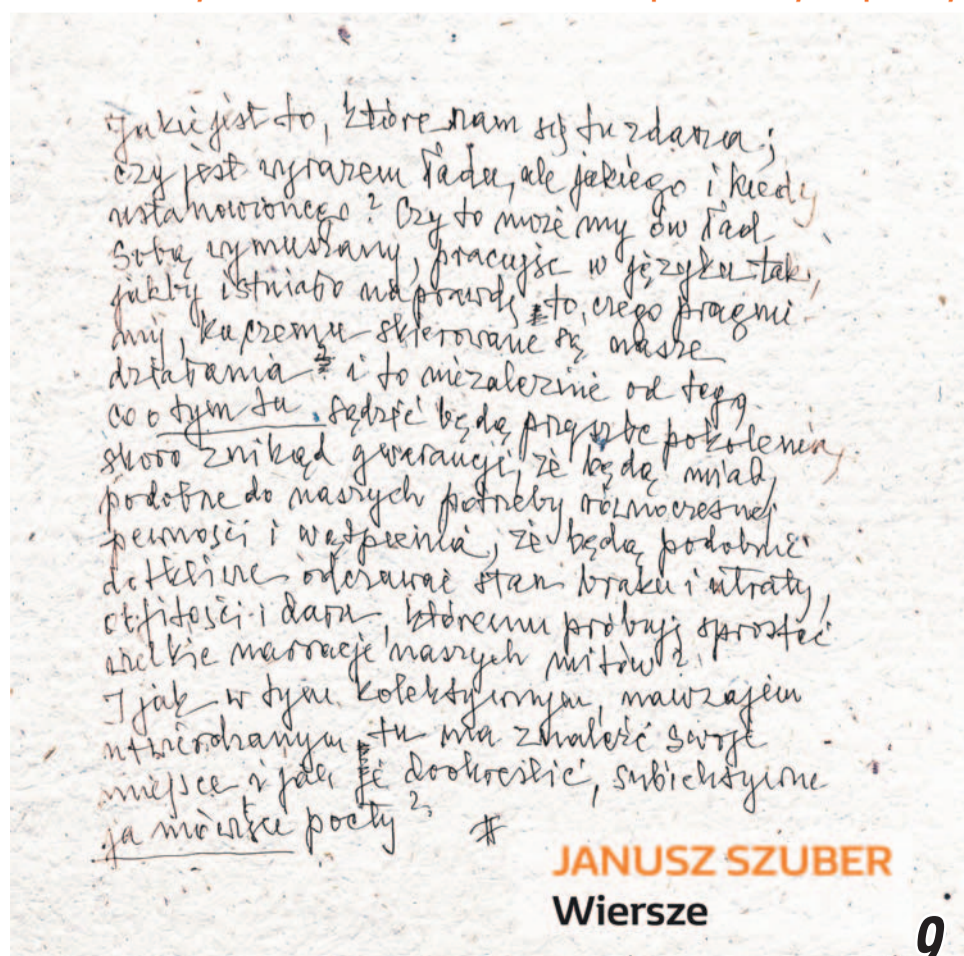 Jakie jest to, które nam się tu zdarza;
czy jest wyrazem ładu, ale jakiego i kiedy
ustanowionego? Czy to może my ów ład
sobą wymuszamy, pracując w języku tak,
jakby istniało naprawdę to, czego pragnie-
my, ku czemu skierowane są nasze
działania? i to niezależnie od tego,
co o tym tu sądzić będą przyszłe pokolenia,
skoro znikąd gwarancji, że będą miały
podobne do naszych potrzeby równoczesnej
pewności i wątpienia, że będą podobnie
dotkliwie odczuwać stan braku i utraty,
obfitości i daru, któremu próbują sprostać
wielkie narracje naszych mitów?
I jak w tym kolektywnym, nawzajem
utwierdzanym tu ma znaleźć swoje
miejsce i jak je dookreślić, subiektywne
ja mówiące poety?
JANUSZ SZUBER
Wiersze
9